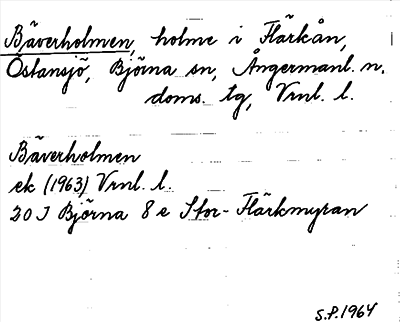 Bäverholmen, holme i Flärkån,
Östansjö, Björna sn, Ångermanl. n.
doms. tg, Vrnl. l.
Bäverholmen
ek (1963) Vrnl. l.
20 J Björna 8 e Stor-Flärkmyran
S.P. 1964